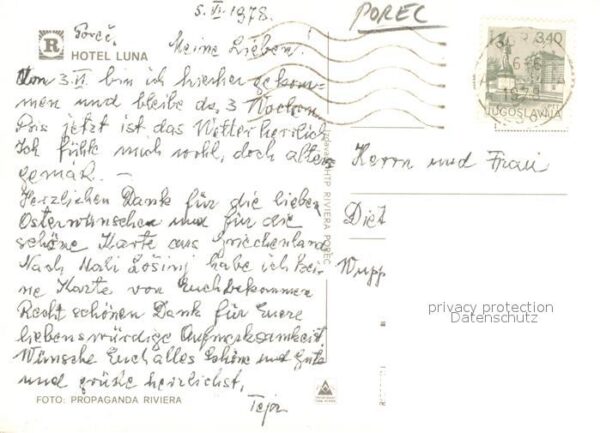 5. VI. 1978.
POREC
R
Poreč.
HOTEL LUNA
Meine Lieben!
Von 3. VI bin ich hierher gekom-
men und bleibe da, 3 Wochen
Bis jetzt ist das Wetter herrlich
Ich fühle mich wohl, doch
gemäß. —
Herzlichen Dank für die lieben
Osterwünschen und für die
schöne Karte aus Griechenland
Nach Mali Lošinj habe ich kei-
ne Karte von Euch bekommen
Recht schönen Dank für Euere
liebenswürdige Aufmerksamkeit
Wünsche Euch alles Schöne und Gute
und grüße herzlichst,
FOTO: PROPAGANDA RIVIERA
HTP RIVIERA POREČ
3,40
1978
JUGOSLAVIJA
Herrn und Frau
Diet
Wupp
privacy protection
Datenschutz